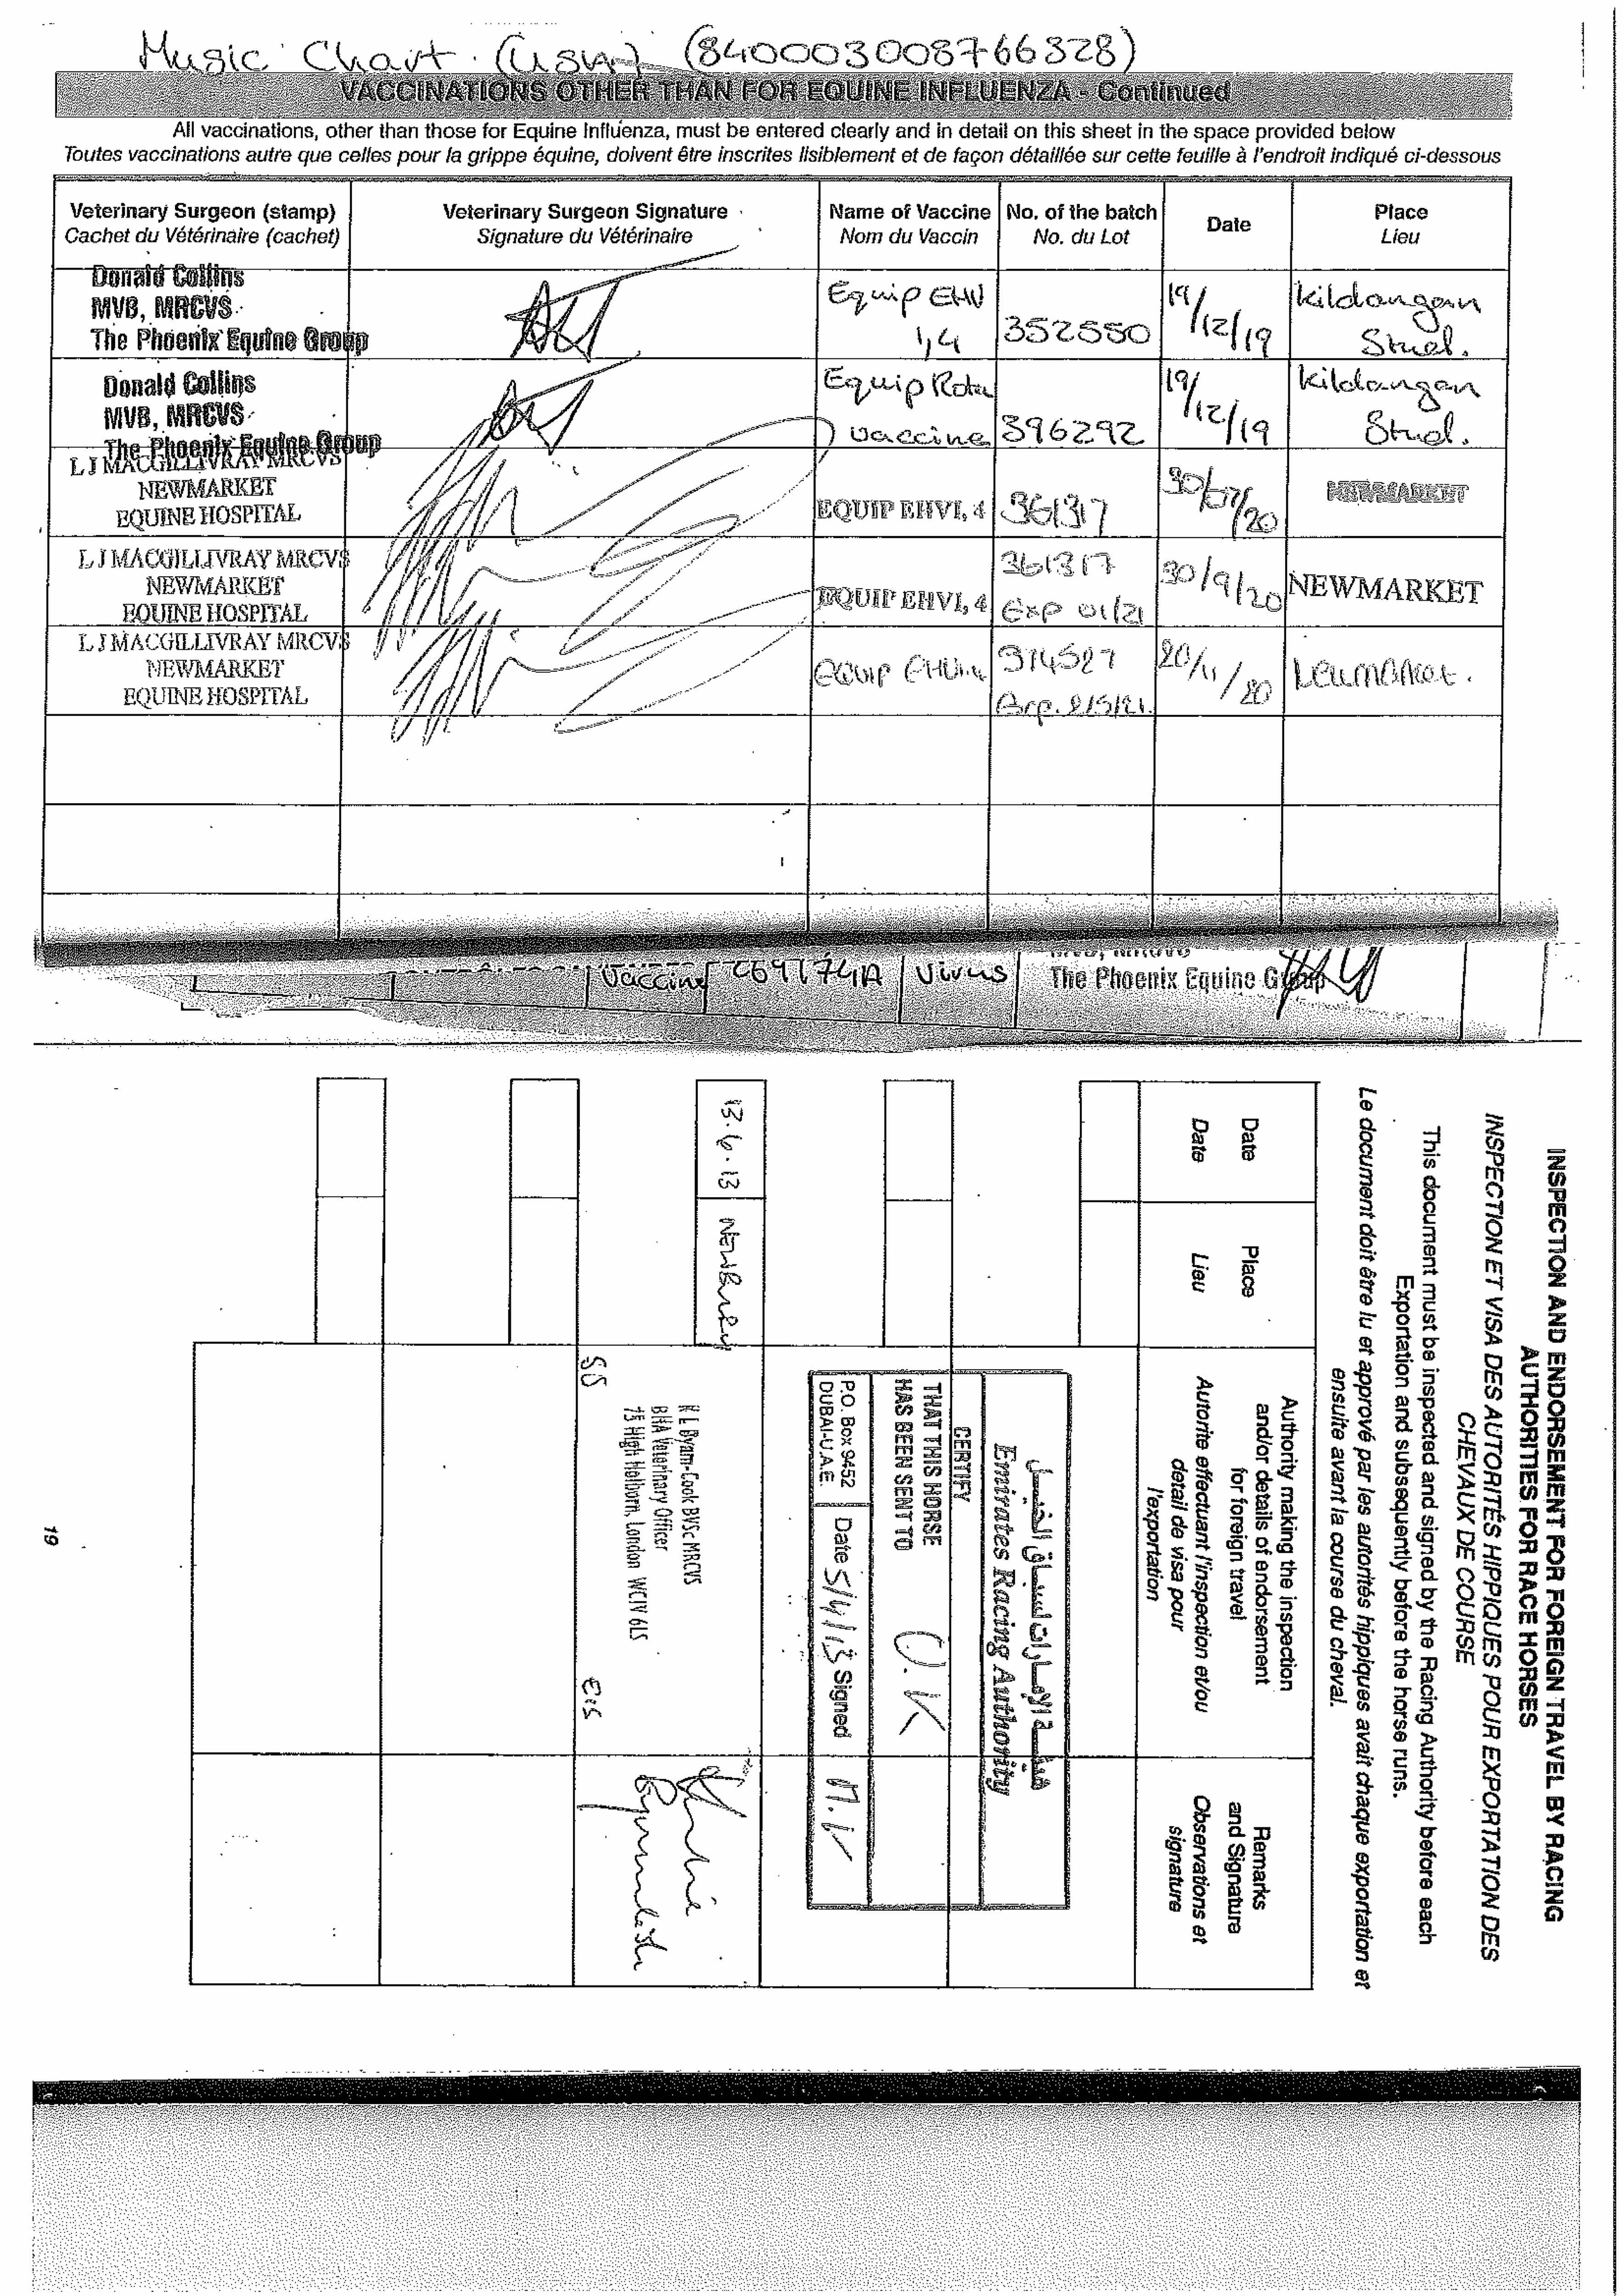 Music Chart (USA) (840003008766328)
VACCINATIONS OTHER THAN FOR EQUINE INFLUENZA - Continued
All vaccinations, other than those for Equine Influenza, must be entered clearly and in detail on this sheet in the space provided below
Toutes vaccinations autre que celles pour la grippe équine, doivent être inscrites lisiblement et de façon détaillée sur cette feuille à l'endroit indiqué ci-dessous
Veterinary Surgeon (stamp) Veterinary Surgeon Signature Name of Vaccine No. of the batch Date Place
Cachet du Vétérinaire (cachet) Signature du Vétérinaire Nom du Vaccin No. du Lot Lieu
Donald Collins
MVB, MRCVS
The Phoenix Equine Group
Equip EHV
1,4
352550
19/12/19
Kildangan
Stud.
Donald Collins
MVB, MRCVS
The Phoenix Equine Group
Equip Rota
vaccine
396292
19/12/19
Kildangan
Stud.
L J MACGILLIVRAY MRCVS
NEWMARKET
EQUINE HOSPITAL
EQUIP EHV1, 4
361317
30/07/20
NEWMARKET
L J MACGILLIVRAY MRCVS
NEWMARKET
EQUINE HOSPITAL
EQUIP EHV1, 4
361317
Exp 01/21
30/9/20
NEWMARKET
L J MACGILLIVRAY MRCVS
NEWMARKET
EQUINE HOSPITAL
EQUIP EHV1,4
374527
20/11/20
Newmarket.
Vaccine
Virus
The Phoenix Equine Group
INSPECTION AND ENDORSEMENT FOR FOREIGN TRAVEL BY RACING
AUTHORITIES FOR RACE HORSES
INSPECTION ET VISA DES AUTORITÉS HIPPIQUES POUR EXPORTATION DES
CHEVAUX DE COURSE
This document must be inspected and signed by the Racing Authority before each
Exportation and subsequently before the horse runs.
Le document doit être lu et apprové par les autorités hippiques avait chaque exportation et
ensuite avant la course du cheval.
Date
Date
Place
Lieu
Authority making the inspection
and/or details of endorsement
for foreign travel
Autorite effectuant l'inspection et/ou
detail de visa pour
l'exportation
Remarks
and Signature
Observations et
signature
هيئة الإمارات لسباق الخيل
Emirates Racing Authority
CERTIFY
THAT THIS HORSE
HAS BEEN SENT TO
O.K
P.O. Box 9452
DUBAI-U.A.E.
Date 5/4/13 Signed M.V
13.6.13
Newbury
N L Byam-Cook BVSc MRCVS
BHA Veterinary Officer
75 High Holborn, London WC1V 6LS
SS
19